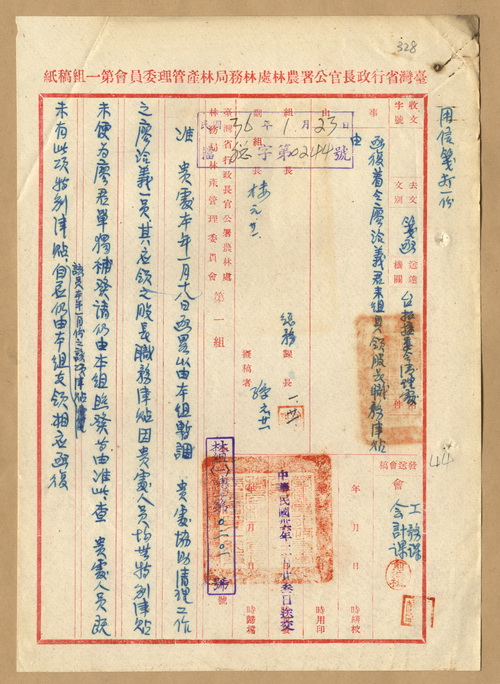 328
臺灣省行政長官公署農林處林務局林產管理委員會第一組稿紙
用信箋打一份
收文 字號
去文 文別 箋函
送達機關 台拓接委會清理處
事由 函復着令廖洽義君來組具領股長職務津貼
民國36年1月23日
字第0244號
組長
副組長
總務課長
擬稿者
發送會稿
工務課
會計課
會
年 月 日 時繕校
時用印
中華民國卅六年一月廿叁日送交
年 月 日 時歸檔
臺灣省行政長官公署農林處林務局林產管理委員會第一組
准 貴處本年一月十八日函畧以由本組暫調 貴處協助清理工作
之廖洽義一員其應領之股長職務津貼因貴處人員均無特別津貼
未便為廖君單獨補發請仍由本組照發等由准此查 貴處人員既
未有此項特別津貼自應仍由本組支領相應函復
該員本年一月份之
44